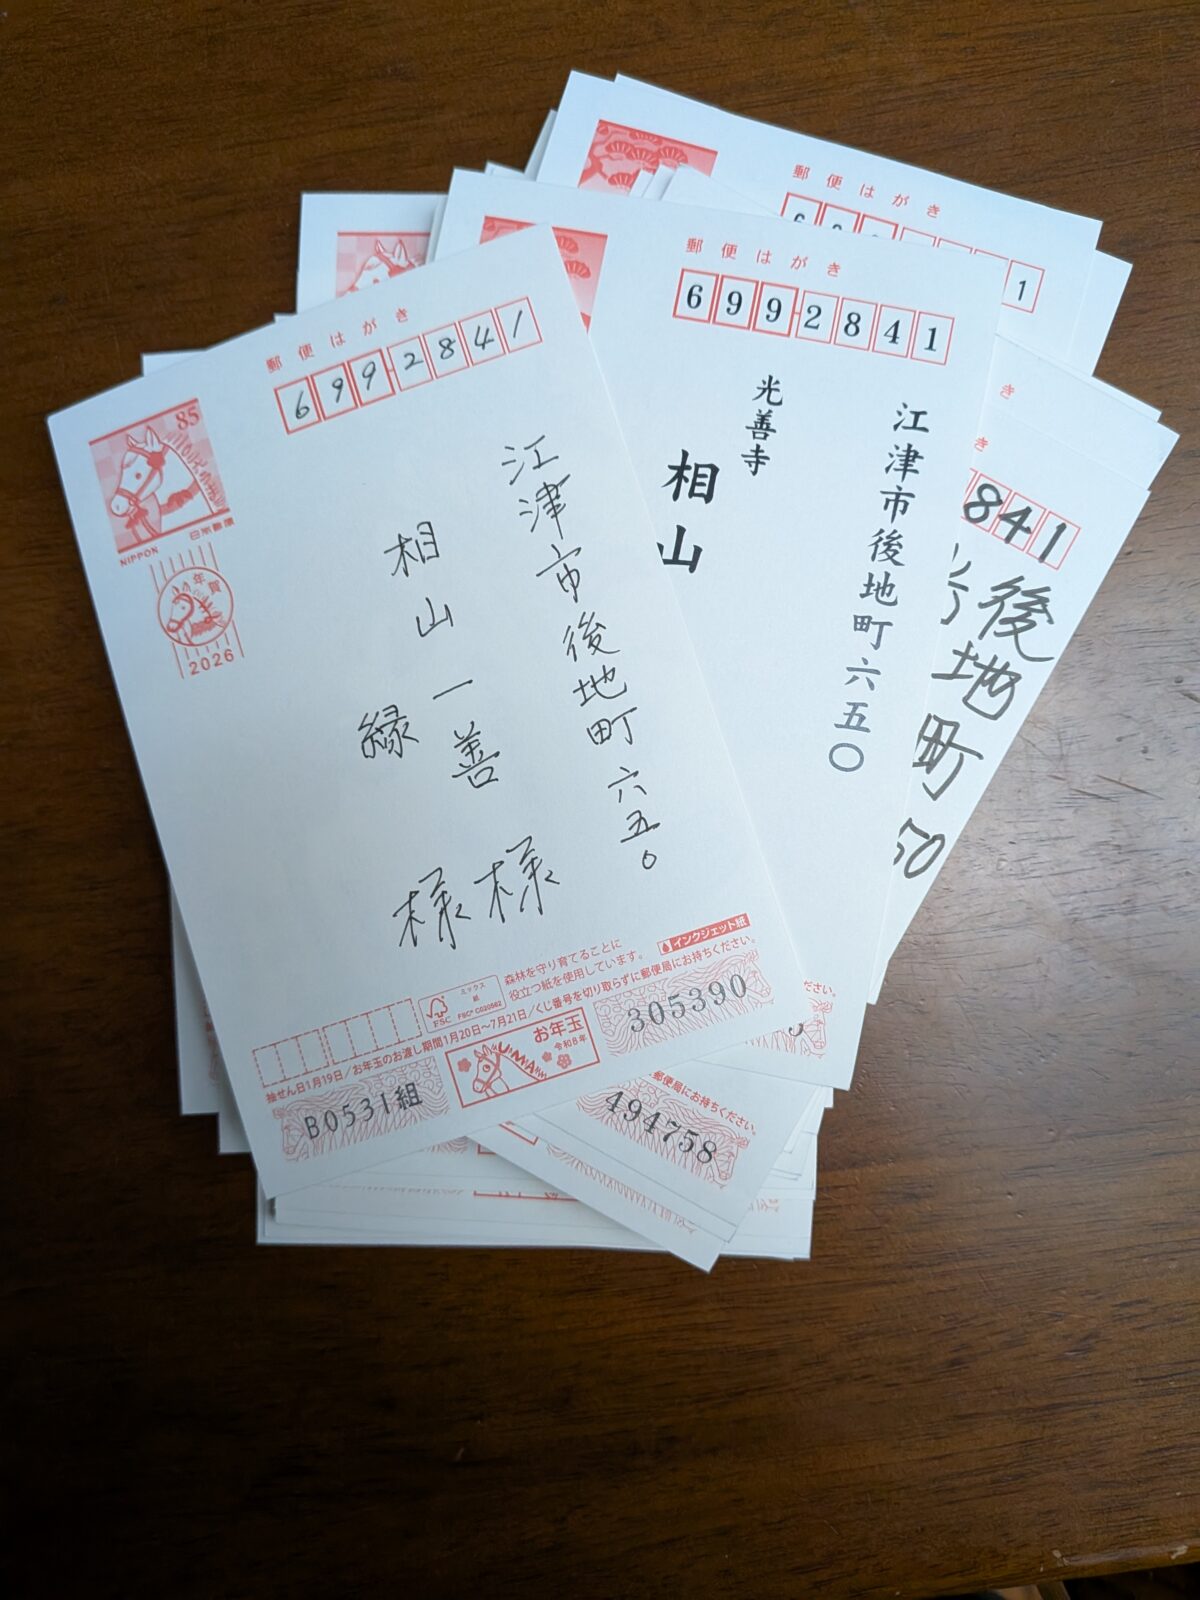 郵便はがき
6992841
85
日本郵便
NIPPON
年賀
2026
江津市後地町六五〇
相山一善様
縁様
森林を守り育てることに
役立つ紙を使用しています。
インクジェット紙
ミックス
紙
FSC
FSC® C020562
抽せん日1月19日/お年玉のお渡し期間1月20日~7月21日/くじ番号を切り取らずに郵便局にお持ちください。
お年玉
令和8年
UMA
B0531組
305390
郵便はがき
6992841
江津市後地町六五〇
光善寺
相山
郵便はがき
1
き
き
841
後地町
50
ださい。
郵便局にお持ちください。
494758